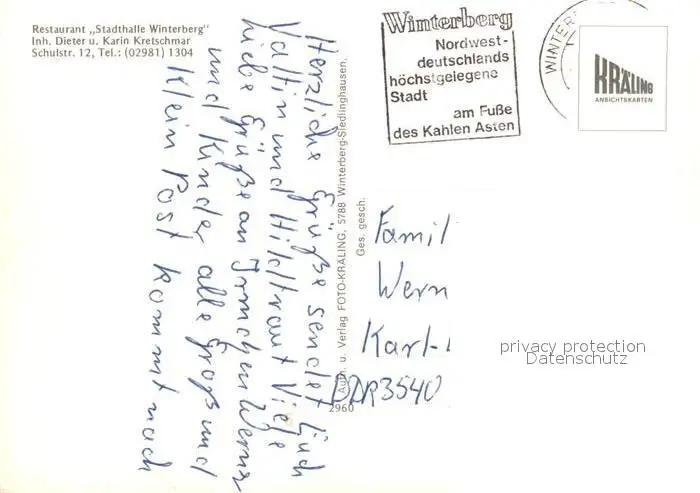 Restaurant „Stadthalle Winterberg"
Inh. Dieter u. Karin Kretschmar
Schulstr. 12, Tel.: (02981) 1304
Winterberg
Nordwest-
deutschlands
höchstgelegene
Stadt
am Fuße
des Kahlen Asten
WINTER
KRÄLING
ANSICHTSKARTEN
Herzliche Grüße sendet Euch
Valtin und Hildtraut Viele
liebe Grüße an Irmchen Werner
und Kinder alle Groß und
Klein Post kommt nach
Auft. u. Verlag FOTO-KRÄLING, 5788 Winterberg-Siedlinghausen,
Ges. gesch.
2960
Famil
Wern
Karl-
DDR 3540
privacy protection
Datenschutz